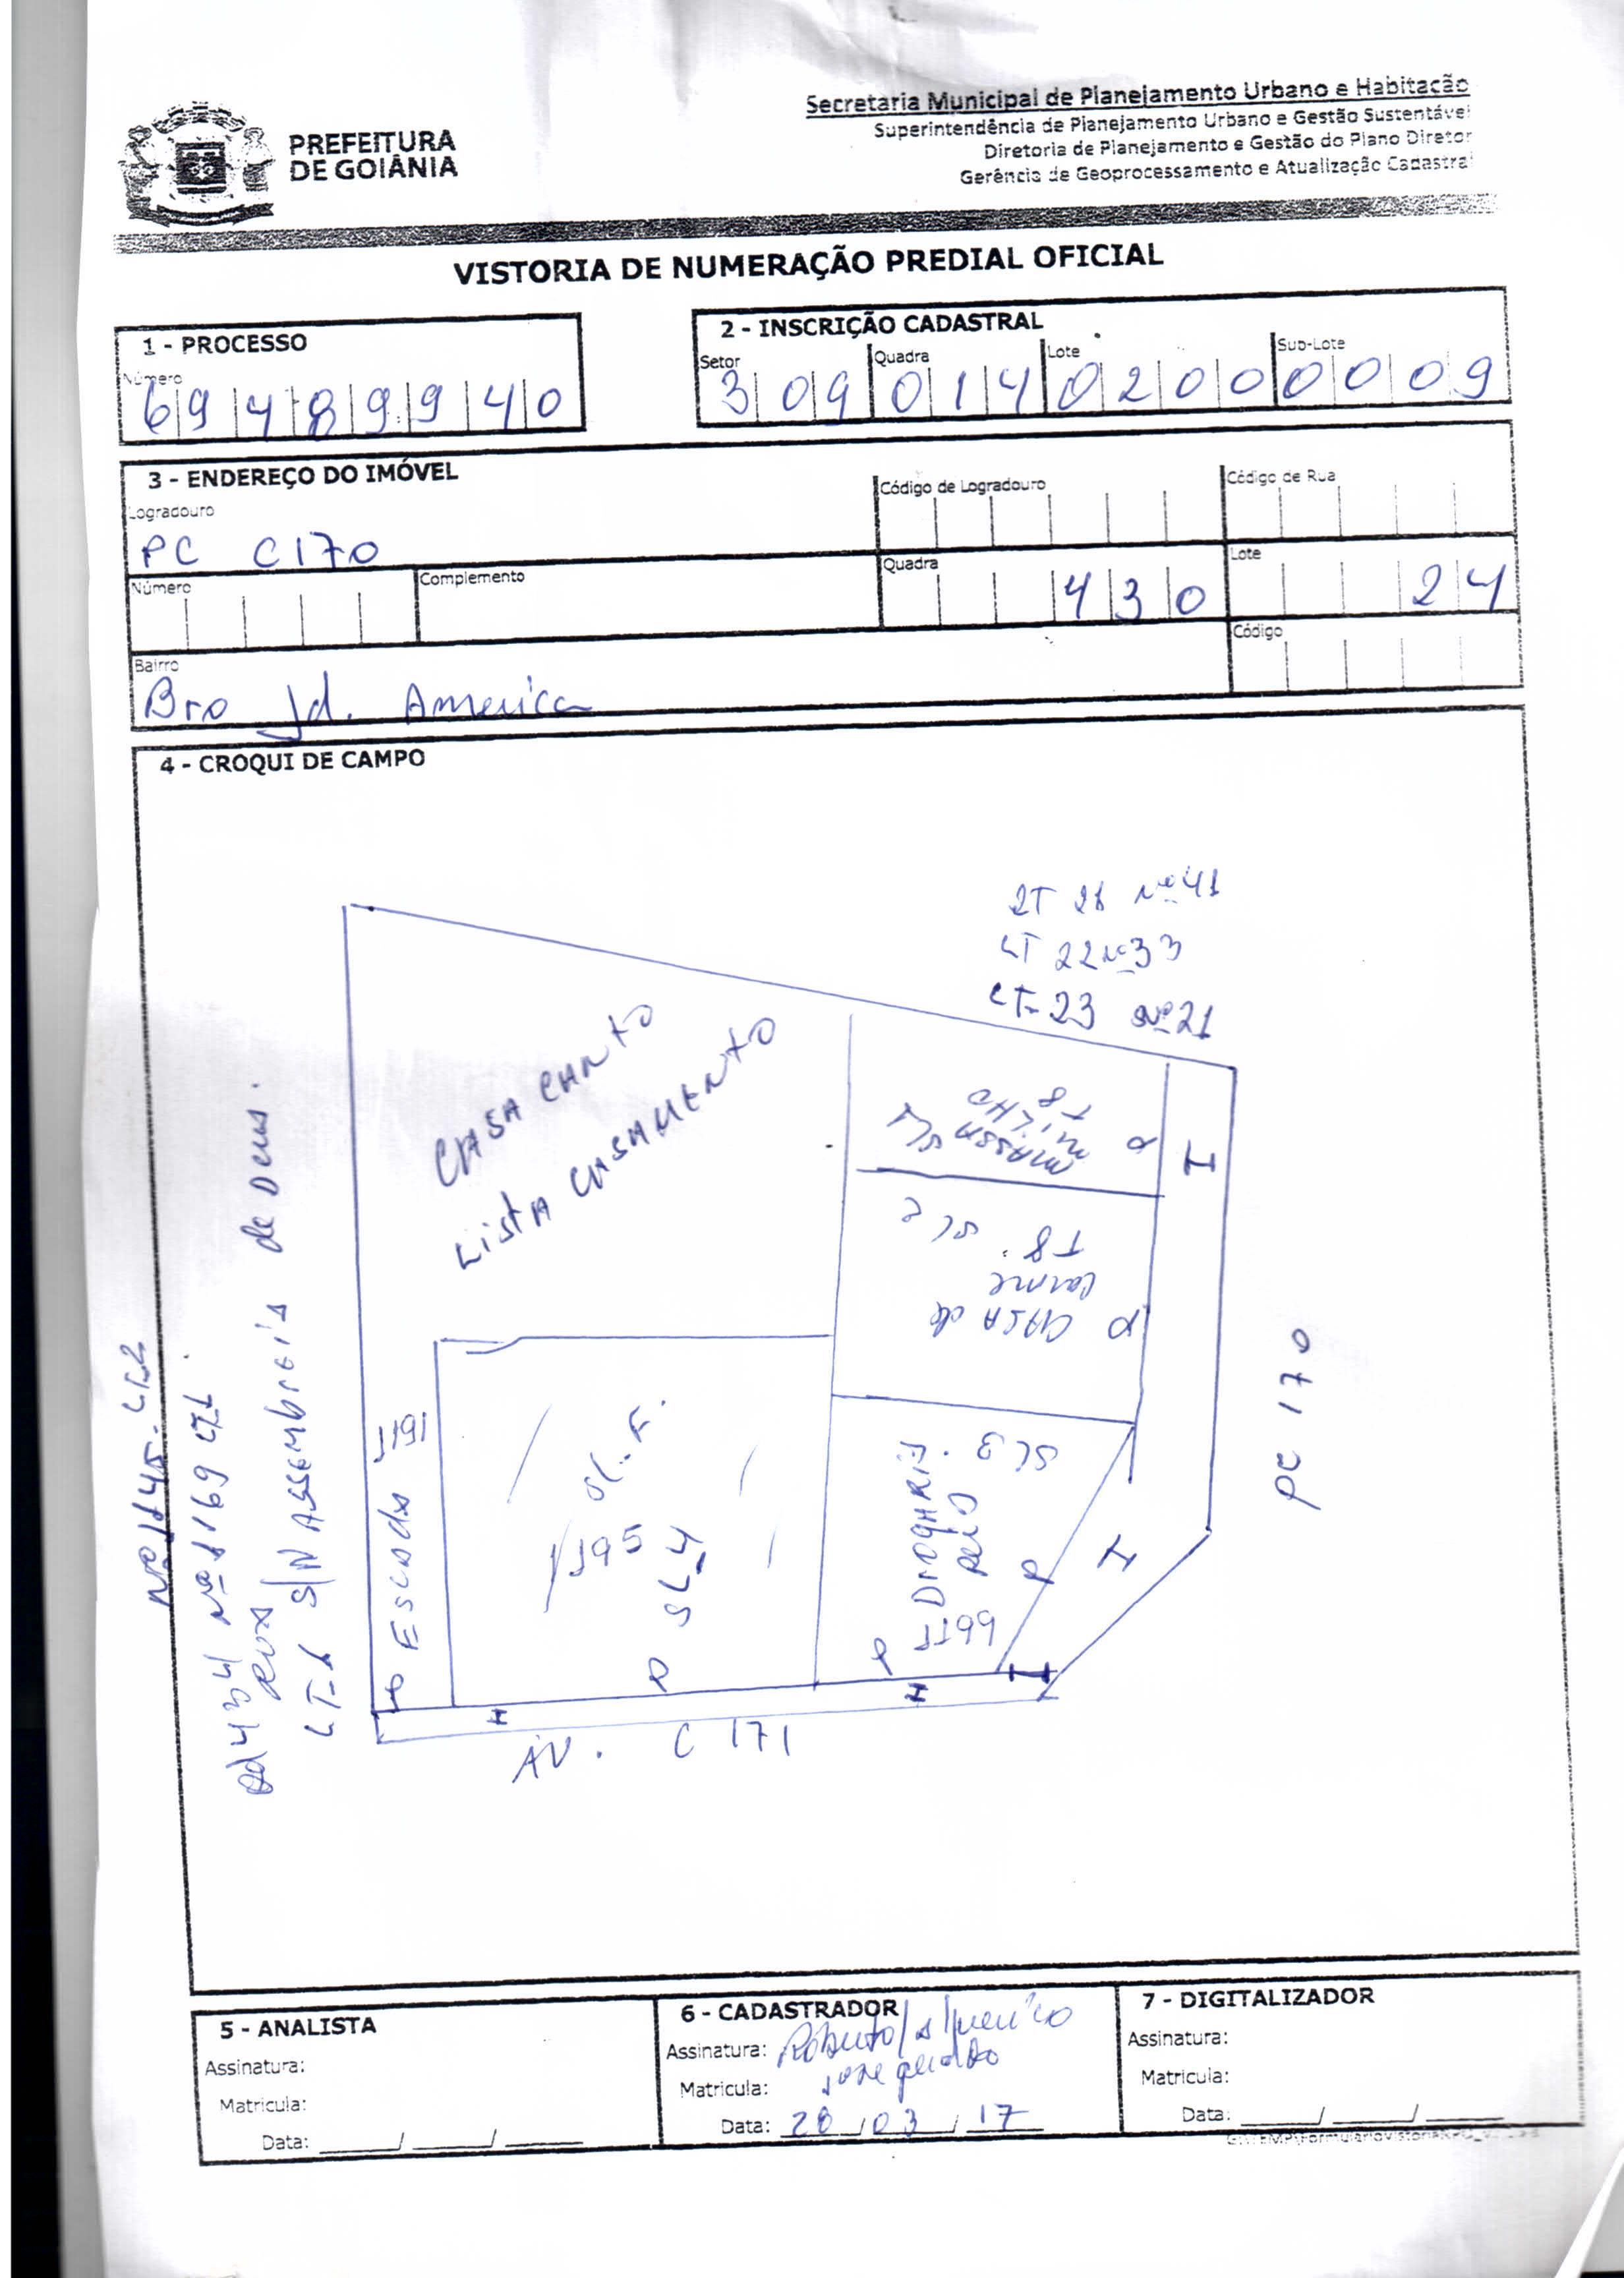 PREFEITURA
DE GOIÂNIA
Secretaria Municipal de Planejamento Urbano e Habitação
Superintendência de Planejamento Urbano e Gestão Sustentável
Diretoria de Planejamento e Gestão do Plano Diretor
Gerência de Geoprocessamento e Atualização Cadastral
VISTORIA DE NUMERAÇÃO PREDIAL OFICIAL
1 - PROCESSO
Número
69489940
2 - INSCRIÇÃO CADASTRAL
Setor Quadra Lote Sub-Lote
309 014 0200 0009
3 - ENDEREÇO DO IMÓVEL
Logradouro
PC C170
Código de Logradouro
Código de Rua
Número
Complemento
Quadra
430
Lote
24
Bairro
Bro Jd. America
Código
4 - CROQUI DE CAMPO
LT 21 Nº 41
LT 22 Nº 33
LT-23 Nº 21
CASA CANTO
LISTA CASAMENTO
MASSA SL1
MILHO
T8
SL 2
T8.
CASA de
carne
SL 3
DROGARIA
1199
1195
SL-4
Escada 1191
PC 170
AV. C 171
Nº 1145- LT2
Qd 434 Nº 1169
LT-1 S/N ASSEMBREIA de Deus.
5 - ANALISTA
Assinatura:
Matricula:
Data: ___/___/___
6 - CADASTRADOR
Assinatura: Roberto
Matricula:
Data: 20/03/17
7 - DIGITALIZADOR
Assinatura:
Matricula:
Data: ___/___/___